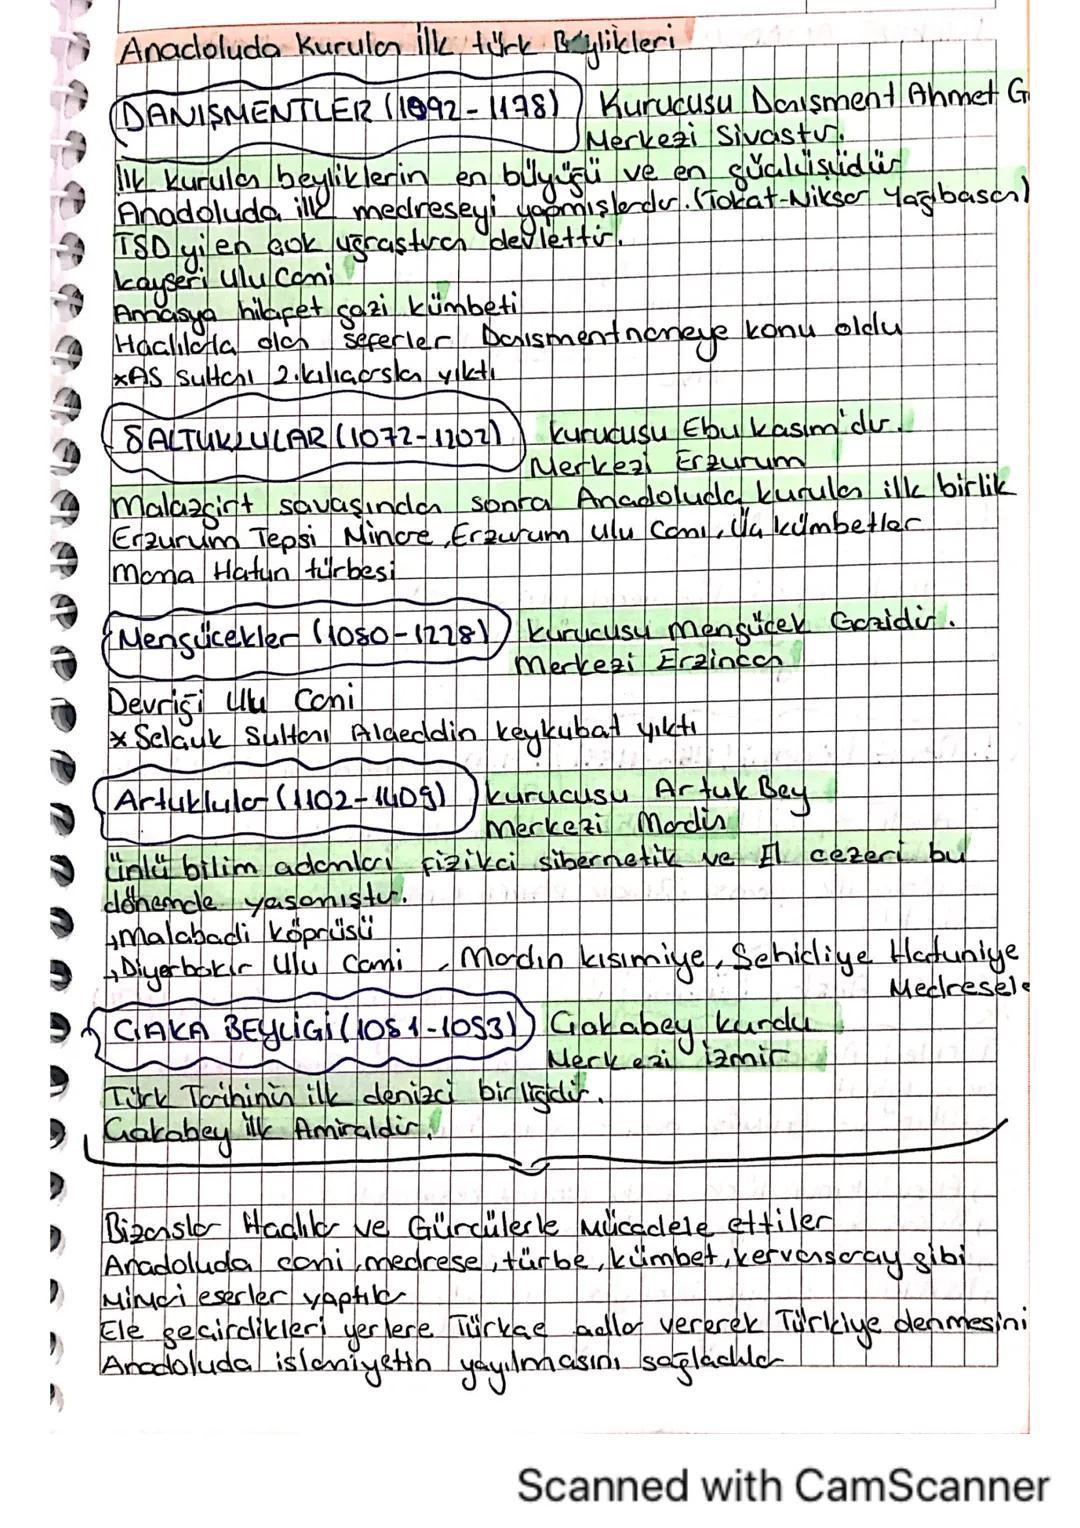 Anadoluda Kurulan İlk türk Beylikleri
DANIŞMENTLER (1092-1178) Kurucusu Danışment Ahmet G
Merkezi Sivastır.
İlk kurulan beyliklerin en büyüğü ve en güçlüsüdür
Anadoluda ilk medreseyi yapmışlardır. (Tokat-Niksar Yağıbasan)
TSD yi en çok uğraştıran devlettir.
kayseri Ulu Cami
Amasya hilafet gazi kümbeti
Haçlılarla olan seferler Danışmentnameye konu oldu
*AS Sultanı 2.kılıçarslan yıktı
SALTUKLULAR (1072-1202) kurucusu Ebu kasım'dır.
Merkezi Erzurum
Malazgirt savaşından sonra Anadoluda kurulan ilk birlik
Erzurum Tepsi Minare, Erzurum Ulu Cami, Üç kümbetler
Mama Hatun türbesi
Mengücekler (1080-1228) kurucusu mengücek Gazidir.
Merkezi Erzincan
Devriği Ulu Cami
* Selçuk Sultanı Alaeddin keykubat yıktı
Artuklular (1102-1409) kurucusu Artuk Bey
merkezi Mardin
Ünlü bilim adamları fizikci sibernetik ve El cezeri bu
dönemde yaşamıştır.
↳Malabadi köprüsü
↳Diyarbakır Ulu Cami, Mardin kısımiye, Şehidiye Hatuniye
Medresele
ÇAKA BEYLİĞİ (1081-1093) Çakabey kurdu
Merkezi İzmir
Türk Tarihinin ilk denizci birliğidir.
Çakabey ilk Amiraldir.
Bizanslar Haçlılar ve Gürcülerle Mücadele ettiler
Anadoluda cami, medrese, türbe, kümbet, kervansaray gibi
Mimari eserler yaptılar
Ele geçirdikleri yerlere Türkçe adlar vererek Türkiye denmesini
Anadoluda islamiyetin yayılmasını sağladılar
Scanned with CamScanner